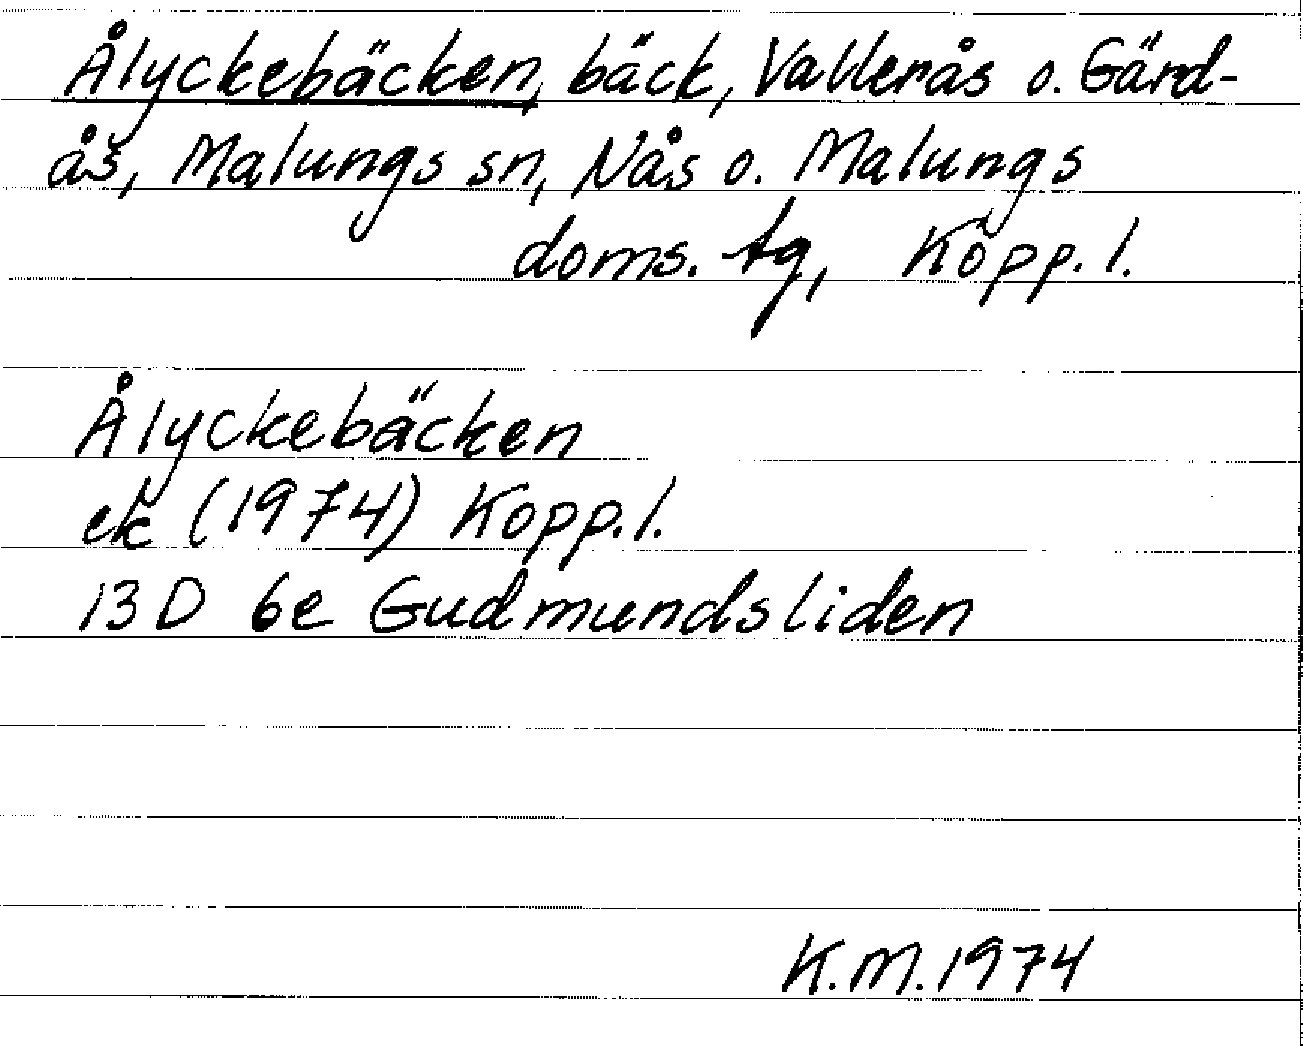 Ålyckebäcken, bäck, Vallerås o. Gärd-
ås, Malungs sn, Nås o. Malungs
doms. tg, Kopp. l.
Ålyckebäcken
ek (1974) Kopp. l.
13D 6e Gudmundsliden
K.M. 1974